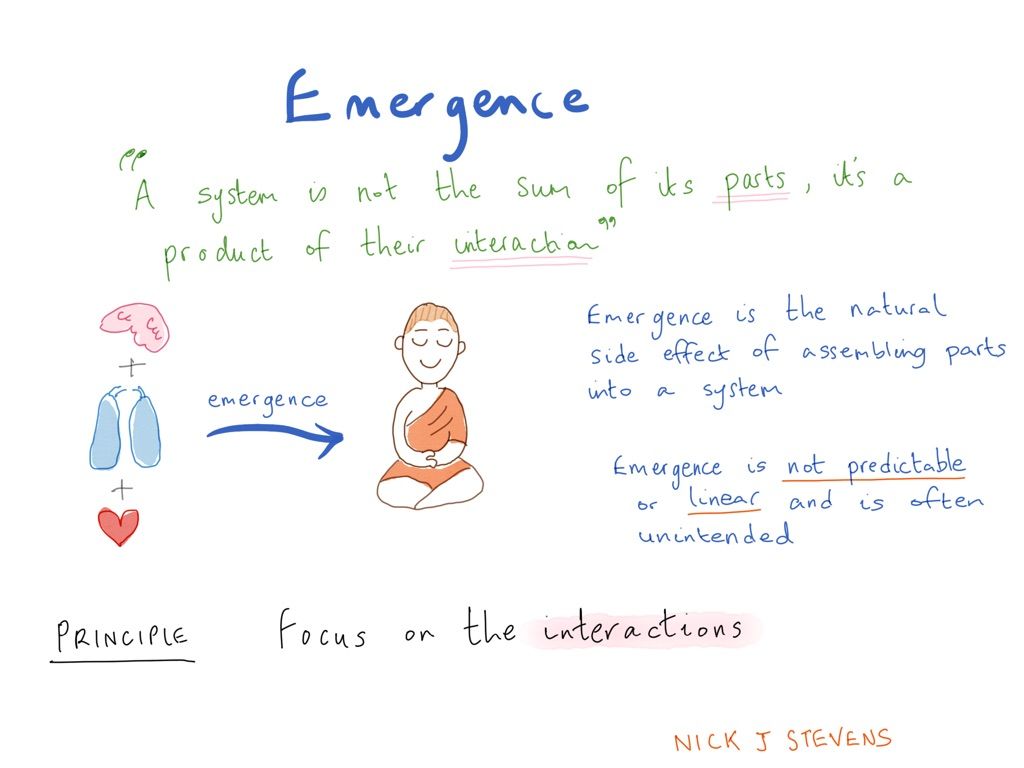 Emergence
"A system is not the sum of its parts, it's a
product of their interaction"
Emergence is the natural
side effect of assembling parts
into a system
+
emergence
+
Emergence is not predictable
or linear and is often
unintended
PRINCIPLE Focus on the interactions
NICK J STEVENS